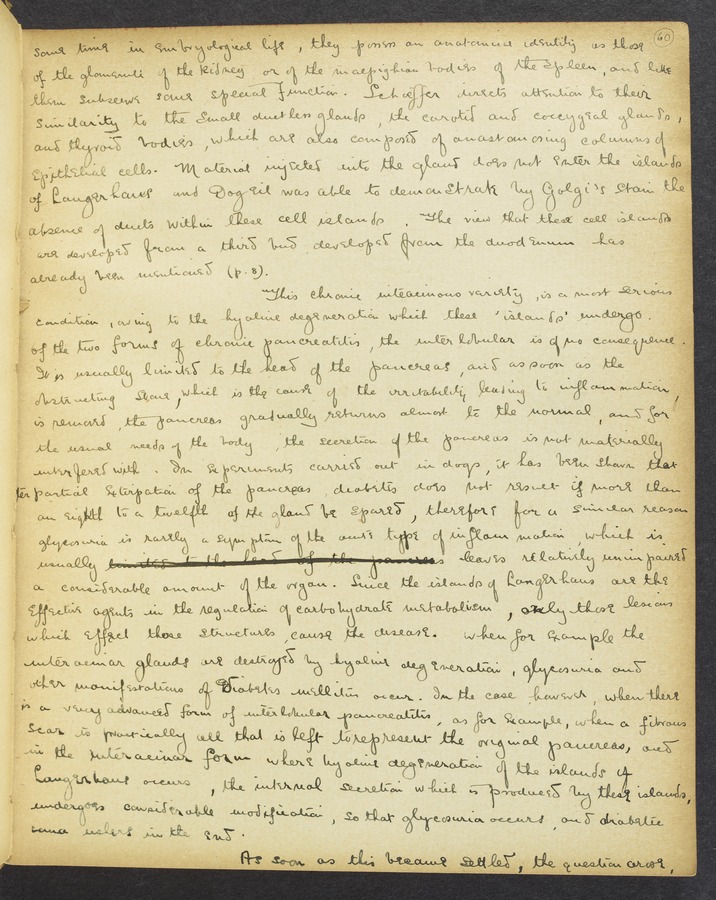 60
some time in embryological life, they possess an anatomical identity as those
of the glomeruli of the kidney or of the malpighian bodies of the spleen, and like
them subserve some special function. Schaffer directs attention to their
similarity to the small ductless glands, the carotid and coccygeal glands,
and thyroid bodies, which are also composed of anastomosing columns of
Epithelial cells. Material injected into the gland does not enter the islands
of Langerhans and Dogeil was able to demonstrate by Golgi's stain the
absence of ducts within these cell islands. The view that these cell islands
are developed from a third bud developed from the duodenum has
already been mentioned (p. 8).
"This chronic interacinous variety, is a most serious
condition, owing to the hyaline degeneration which these 'islands' undergo.
Of the two forms of chronic pancreatitis, the interlobular is of no consequence.
It is usually limited to the head of the pancreas, and as soon as the
obstructing stone, which is the cause of the irritability leading to inflammation,
is removed, the pancreas gradually returns almost to the normal, and for
the usual needs of the body, the secretion of the pancreas is not materially
interfered with. In experiments carried out in dogs, it has been shown that
after partial Exterpation of the pancreas, diabetes does not result if more than
an eighth to a twelfth of the gland be spared, therefore for a similar reason
glycosuria is rarely a symptom of the acute type of inflammation, which is
usually limited to the head of the pancreas leaves relatively unimpaired
a considerable amount of the organ. Since the islands of Langerhans are the
Effective agents in the regulation of carbohydrate metabolism, only those lesions
which effect those structures, cause the disease. When for example the
interacinar glands are destroyed by hyaline degeneration, glycosuria and
other manifestations of Diabetes mellitus occur. In the case however, when there
is a very advanced form of interlobular pancreatitis, as for Example, when a fibrous
scar is practically all that is left to represent the original pancreas, and
in the interacinar form where hyaline degeneration of the islands of
Langerhans occurs, the internal secretion which is produced by these islands,
undergoes considerable modification, so that glycosuria occurs, and diabetic
coma ushers in the end.
As soon as this became settled, the question arose,